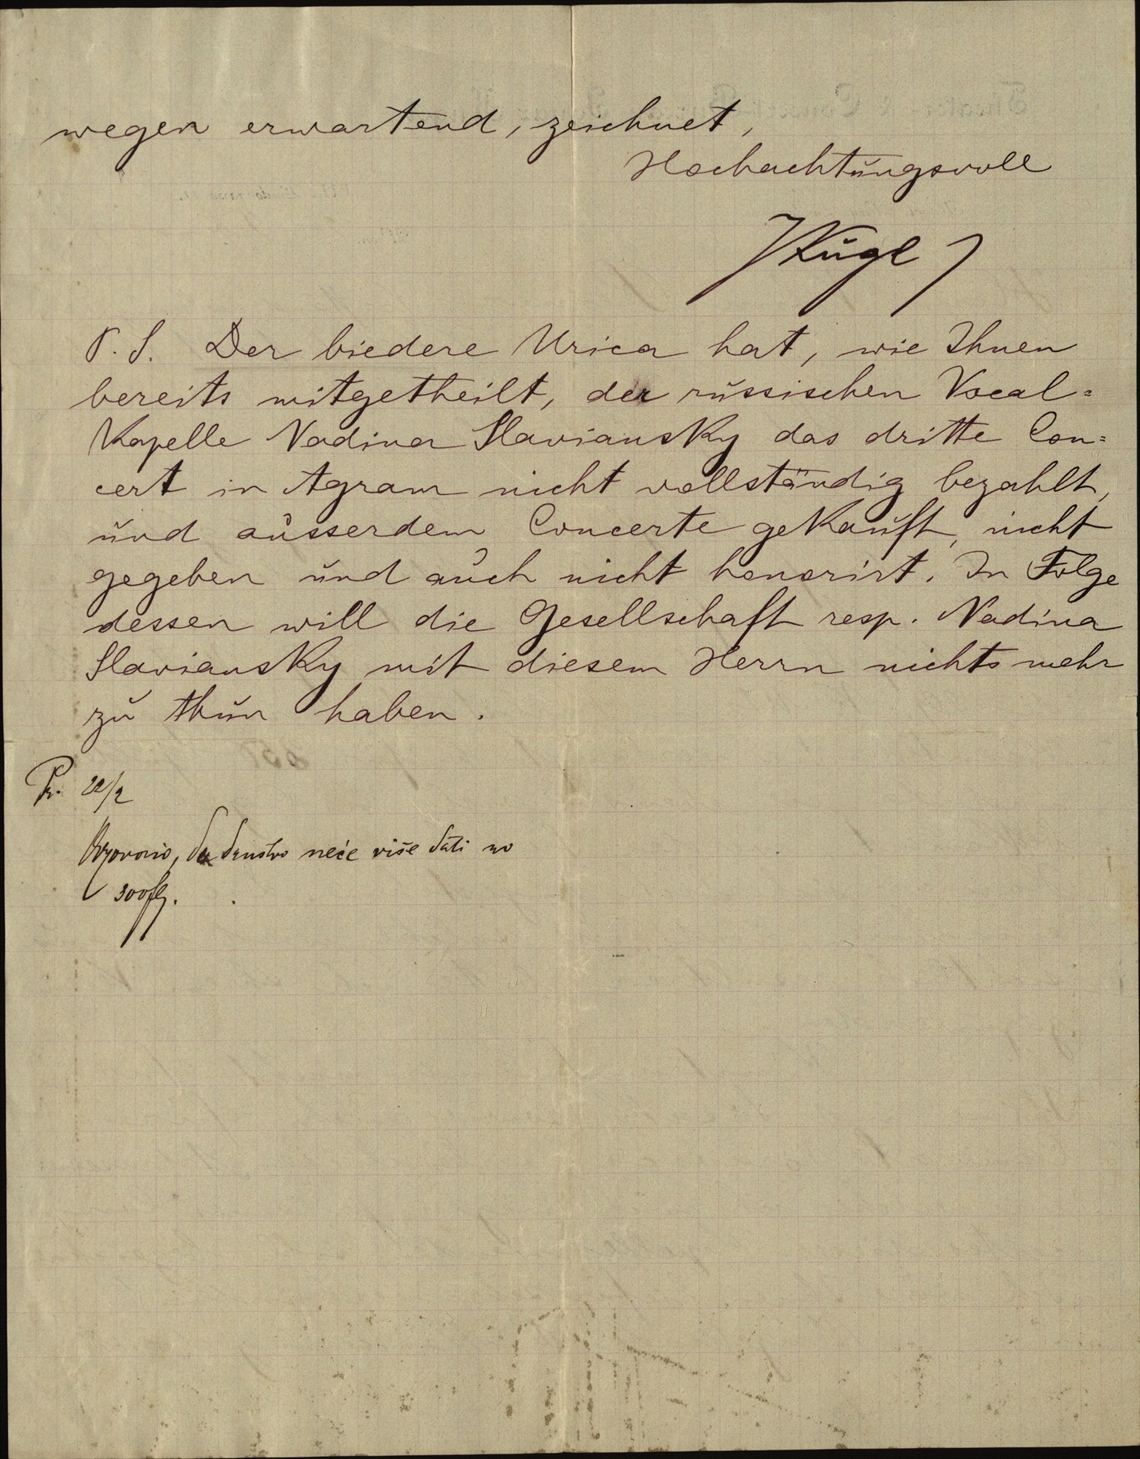 wegen erwartend, zeichnet,
Hochachtungsvoll
Kugl
P. S. Der biedere Urica hat, wie Ihnen
bereits mitgetheilt, der russischen Vocal=
Kapelle Nadina Slaviansky das dritte Con=
cert in Agram nicht vollständig bezahlt,
und ausserdem Concerte gekauft, nicht
gegeben und auch nicht honorirt. In Folge
dessen will die Gesellschaft resp. Nadina
Slaviansky mit diesem Herrn nichts mehr
zu thun haben.
Pr. 22/2
da društvo neće više dati no
300 fl.